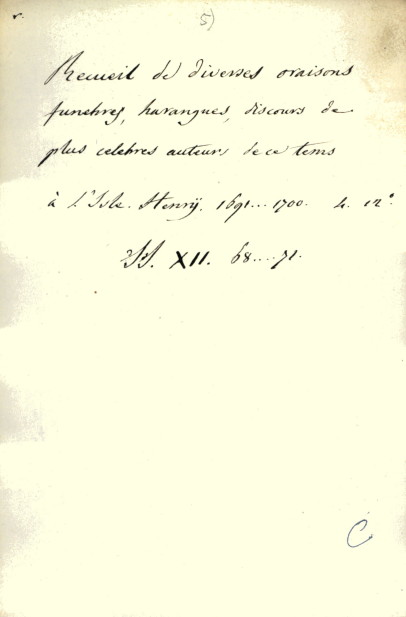 r.
5)
Recueil de diverses oraisons
funebres, harangues, discours de
plus celebres auteurs de ce tems
à L'Isle. Henrÿ. 1691...1700. 4. 12°.
XII. 68....71.
C